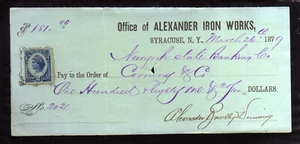 $181.00
Office of ALEXANDER IRON WORKS,
SYRACUSE, N. Y., March 26th 1879
New York State Banking Co
Pay to the Order of Corning & Co
One Hundred & eighty one & no/100 DOLLARS
No. 202
Alexander Bradley &